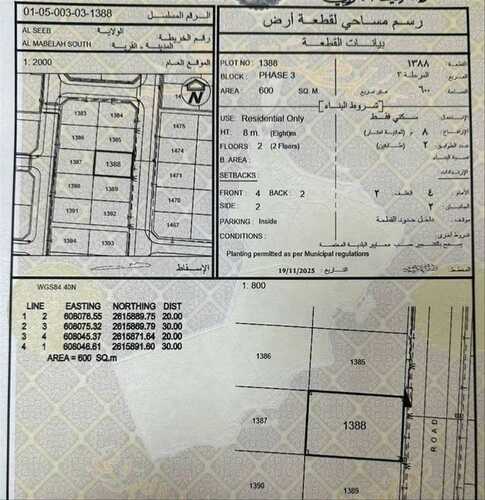 01-05-003-03-1388 الرقم المسلسل
AL SEEB الولاية
رقم الخريطة
AL MABELAH SOUTH المدينة ، القرية
1: 2000 الموقع العام
1383
1384
1475
1386
1385
1474
1387
1388
1471
1390
1389
1470
1391
1392
1467
1394
1393
الإسقاط
رسم مساحي لقطعة أرض
بيانات القطعة
PLOT NO : 1388 ١٣٨٨ القطعة
BLOCK : PHASE 3 المرحلة ٣ المربع
AREA : 600 SQ. M متر مربع ٦٠٠ المساحة
شروط البناء
USE: Residential Only سكني فقط الإستعمال
HT: 8 m. (Eight)m ٨
FLOORS : 2 (2 Floors) ٢ (طابقين) عدد الطوابق
B. AREA :
SETBACKS : الإرتدادات
FRONT : 4 BACK : 2 ٢ الخلف ٤ الأمام
SIDE : 2 ٢
PARKING : Inside داخل حدود القطعة موقف
CONDITIONS : شروط أخرى
يسمح بالتشجير حسب معايير البلدية المعتمدة
Planting permitted as per Municipal regulations
19/11/2025 التاريخ
المخطط
WGS84 40N
1: 800
LINE EASTING NORTHING DIST
1 2 608076.55 2615889.75 20.00
2 3 608075.32 2615869.79 30.00
3 4 608045.37 2615871.64 20.00
4 1 608046.61 2615891.60 30.00
AREA = 600 SQ.m
1386
1385
1387
1388
1390
1389
ROAD